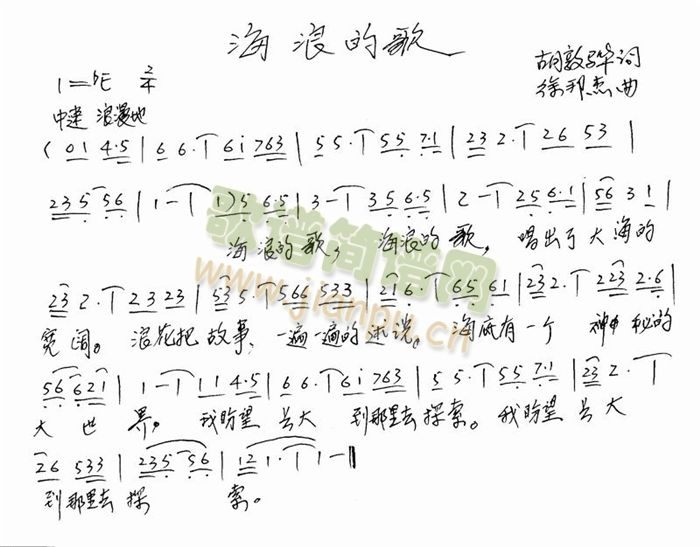 海浪的歌
胡敦骅词
1=bE 2/4
徐邦杰曲
中速 浪漫地
(01 4·5 | 6 6· | 6i 763 | 5 5· | 55 7·1 | 23 2· | 26 53 |
235 56 | 1 - | 1)5 6·5 | 3 - | 35 6·5 | 2 - | 25 6·1 | 56 3 1 |
海浪的歌, 海浪的歌, 唱出了大海的
23 2· | 23 23 | 53 5· | 566 533 | 216· | 65 61 | 232· | 223 2·6 |
宽阔。 浪花把故事, 一遍一遍的述说。 海底有一个 神秘的
56 621 | 1 - | 11 4·5 | 66· | 6i 763 | 5 5· | 55 7·1 | 23 2· |
大世界。 我盼望长大 到那里去探索。 我盼望长大
26 533 | 235 56 | 12 1· | 1 - ‖
到那里去探 索。
歌谱简谱网
www.jianpu.cn